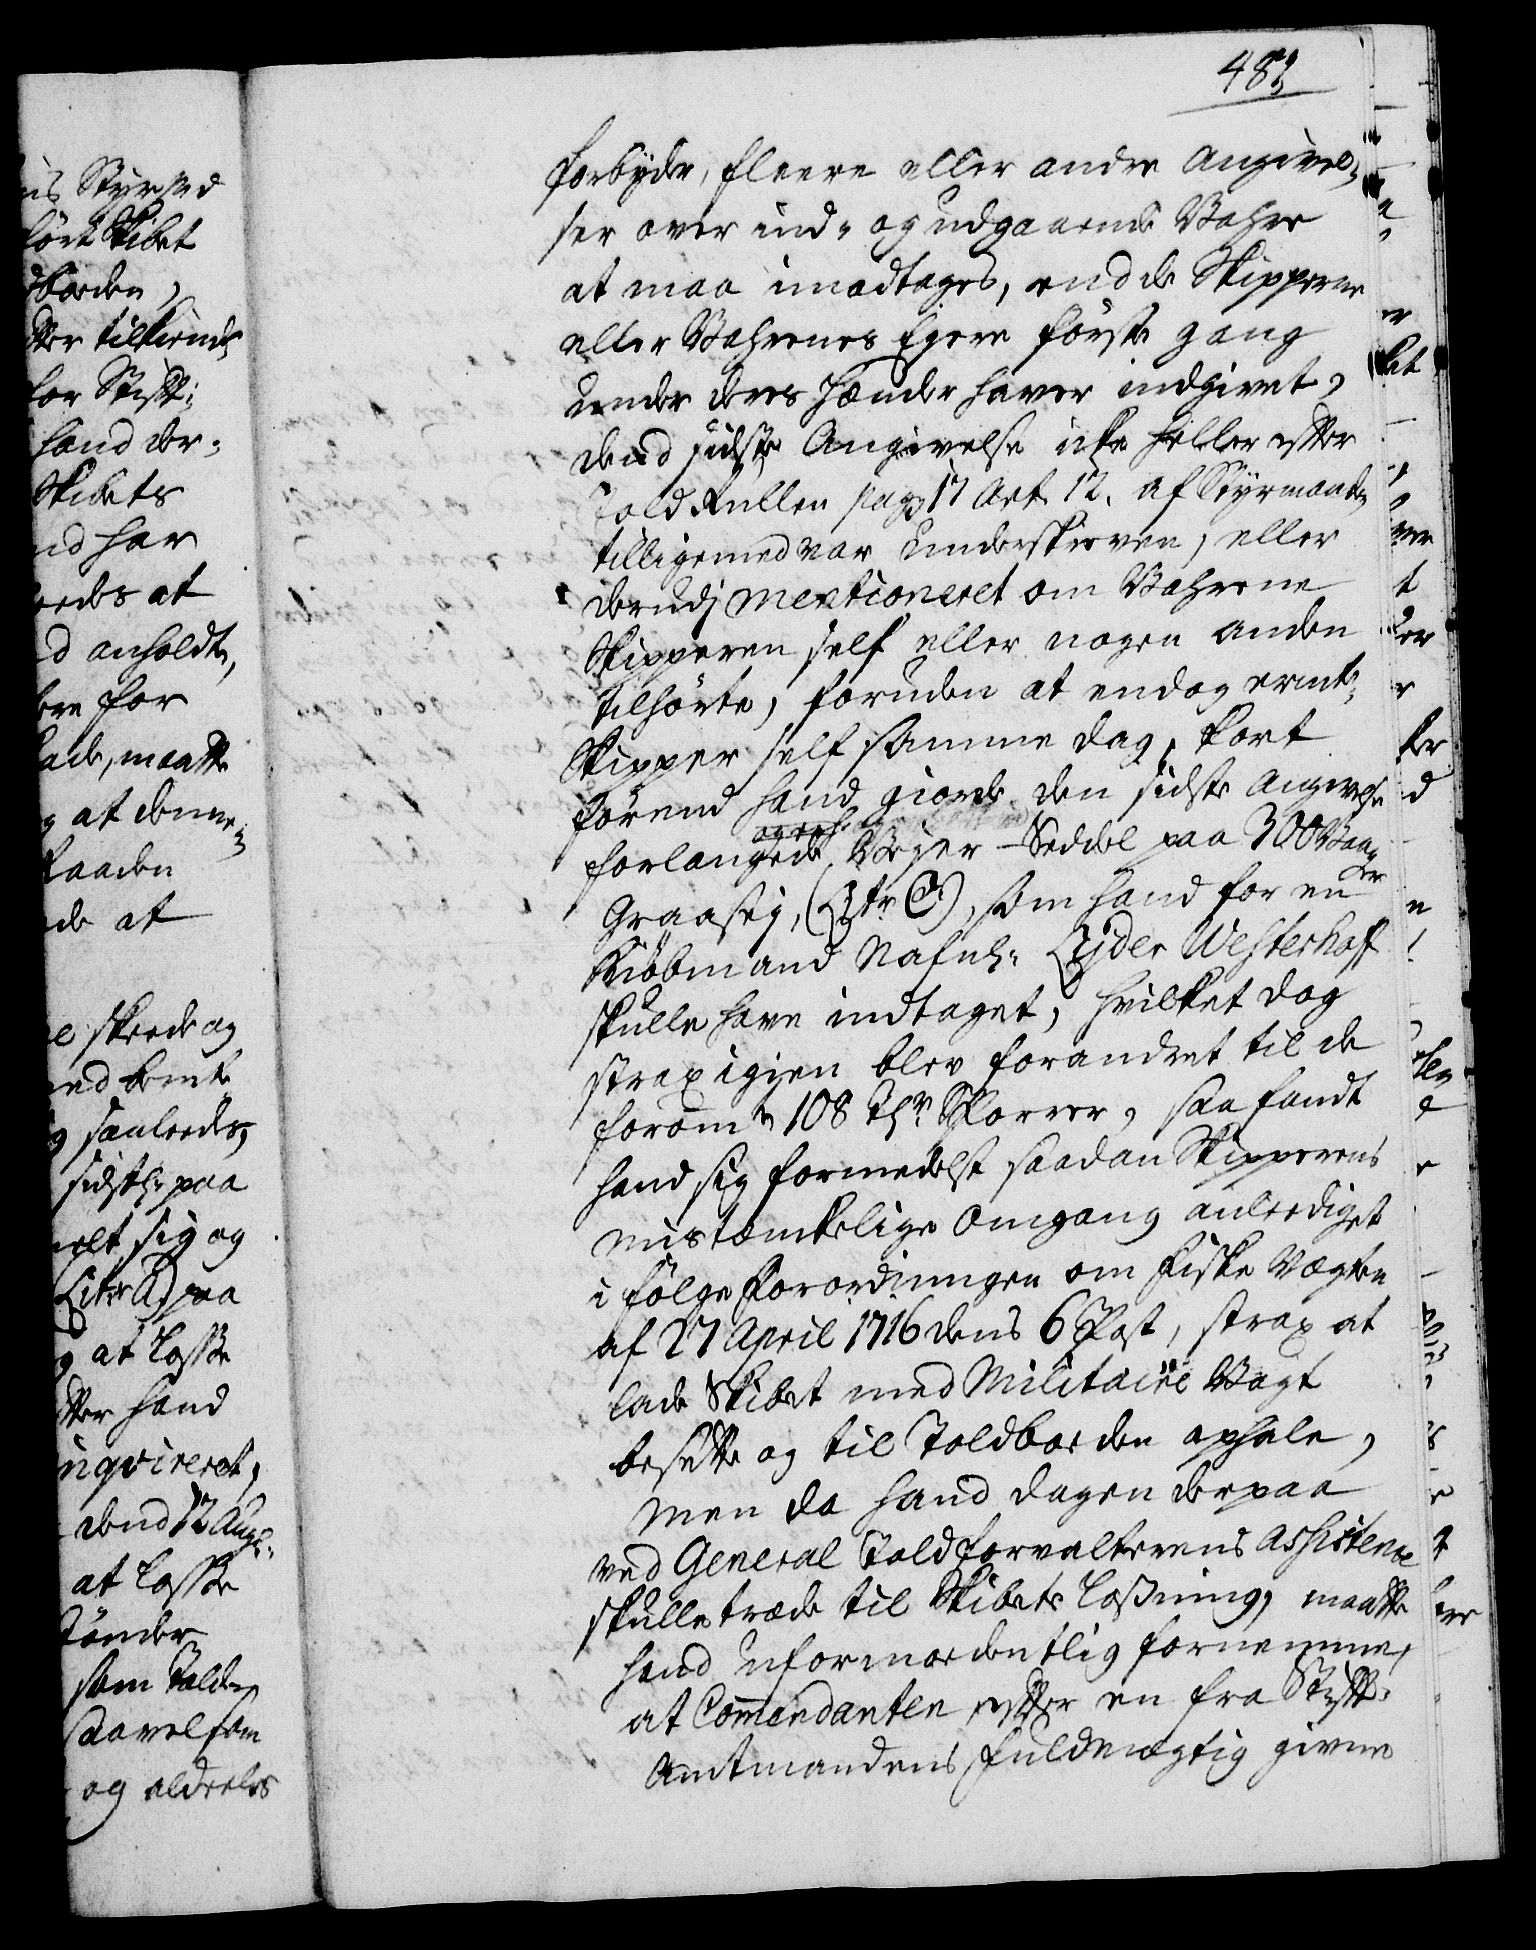 483
forbyder, fleere eller andre Angivel-
ser over ind- og udgaaende Vahre
at maa imodtages, end de Skipperne
eller Vahrenes Egere første gang
under deres Hænder haver indgivet,
dend sidste Angivelse icke heller efter
Told Rullen pag 17 Art 12. af Styrmanden
tilligemed var underskreven, eller
derudj mentioneret om Vahrene
Skipperen self eller nogen anden
tilhørte, foruden at endog ermte
Skipper self samme dag, kort
førend hand giorde den sidste Angivelse
forlangede Vejer-Seddel paa 300 Vaa-
ger
Graasej, (Litr C), som hand for en
Kiøbmand Nafnl: Lyder Westerhoff
skulle have indtaget, hvilket dog
strax igien blev forandret til de
foromte 108 Thr Skorrer, saa fandt
hand sig formedelst saadan Skipperens
mistænkelige Omgang anlediget
i følge Forordningen om Fiske Vægten
af 27 April 1716 dens 6 Post, strax at
lade Skibet med Militaire Vagt
besette og til Toldboden ophale,
Men da hand dagen derpaa
ved General Toldforvalterens Assistence
skulle træde til Skibets Losning, maatte
hand uformodentlig fornemme,
at Commendanten efter en fra Stift-
Amtmandens Fuldmægtig given
ns Styrmd
ført Skibet
dboden,
for Stift-
hand der-
Skibets
nd har
ordes at
d anholdte,
ere for
ade, maatte
g at denne
Raaden
de at
skeede og
ed bemte
g saaledes,
sidstl: paa
melt sig og
(Litr A) paa
g at losse
tter hand
inqvireret,
dend 12 Aug:
at losse
Tønder
som Told-
saavelsom
og aldeeles